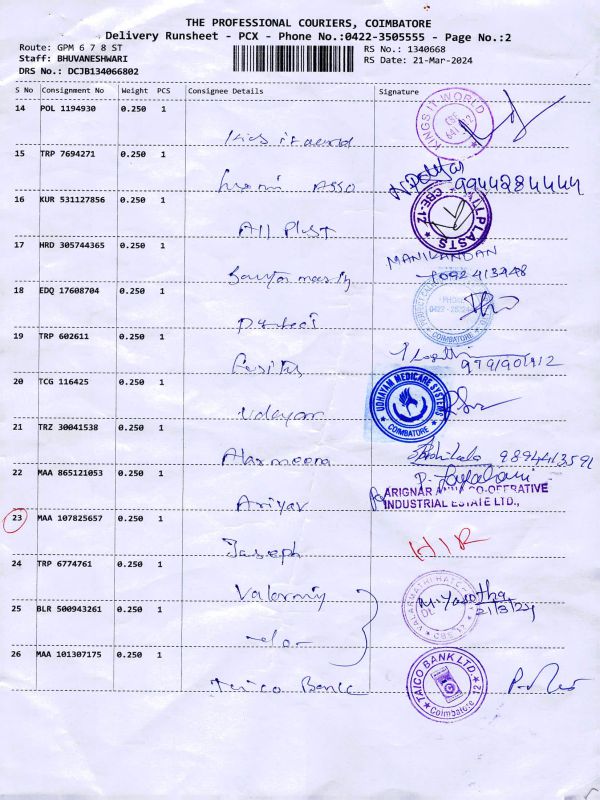 THE PROFESSIONAL COURIERS, COIMBATORE
Delivery Runsheet - PCX - Phone No.:0422-3505555 - Page No.:2
Route: GPM 6 7 8 ST
RS No.: 1340668
Staff: BHUVANESHWARI
RS Date: 21-Mar-2024
DRS No.: DCJB134066802
S No Consignment No Weight PCS Consignee Details Signature
14 POL 1194930 0.250 1
KINGS IT WORLD
15 TRP 7694271 0.250 1
Asso 9944284444
16 KUR 531127856 0.250 1
All Plast
CBE-12
17 HRD 305744365 0.250 1
MANIKANDAN
18 EDQ 17608704 0.250 1
Perfect
COIMBATORE
19 TRP 602611 0.250 1
20 TCG 116425 0.250 1
Udayam
UDHAYAM MEDICARE SYSTEMS
COIMBATORE
21 TRZ 30041538 0.250 1
9894413591
22 MAA 865121053 0.250 1
ARIGNAR ANNA CO-OPERATIVE
INDUSTRIAL ESTATE LTD.,
23 MAA 107825657 0.250 1
Joseph
24 TRP 6774761 0.250 1
M. Yasotha
21/3/24
25 BLR 500943261 0.250 1
-do-
26 MAA 101307175 0.250 1
Taico Bank
TAICO BANK LTD.
Coimbatore 12